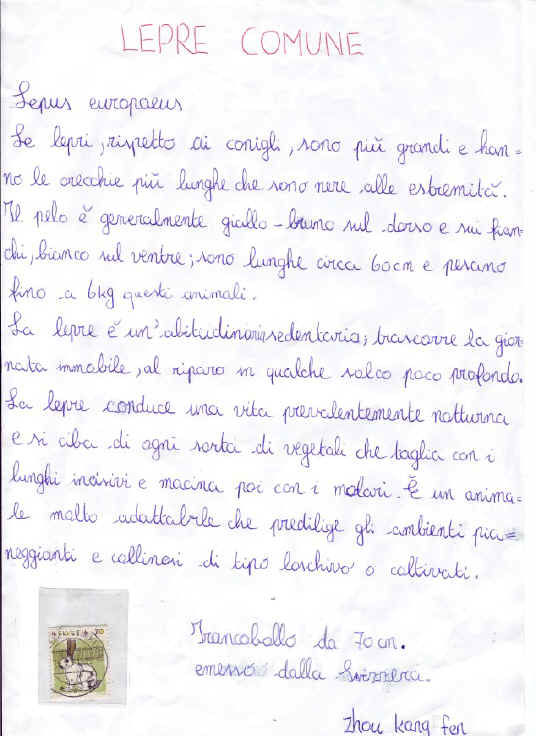 LEPRE COMUNE
Lepus europaeus
Le lepri, rispetto ai conigli, sono più grandi e han=
no le orecchie più lunghe che sono nere alle estremità.
Il pelo è generalmente giallo-bruno sul dorso e sui fian=
chi, bianco sul ventre; sono lunghe circa 60cm e pesano
fino a 6kg questi animali.
La lepre è un'abitudinaria sedentaria; trascorre la gior=
nata immobile, al riparo in qualche solco poco profondo.
La lepre conduce una vita prevalentemente notturna
e si ciba di ogni sorta di vegetali che taglia con i
lunghi incisivi e macina poi con i molari. È un anima=
le molto adattabile che predilige gli ambienti pia=
neggianti e collinari di tipo boschivo o coltivati.
70
Francobollo da 70 cm.
emesso dalla Svizzera.
Zhou Kang fen